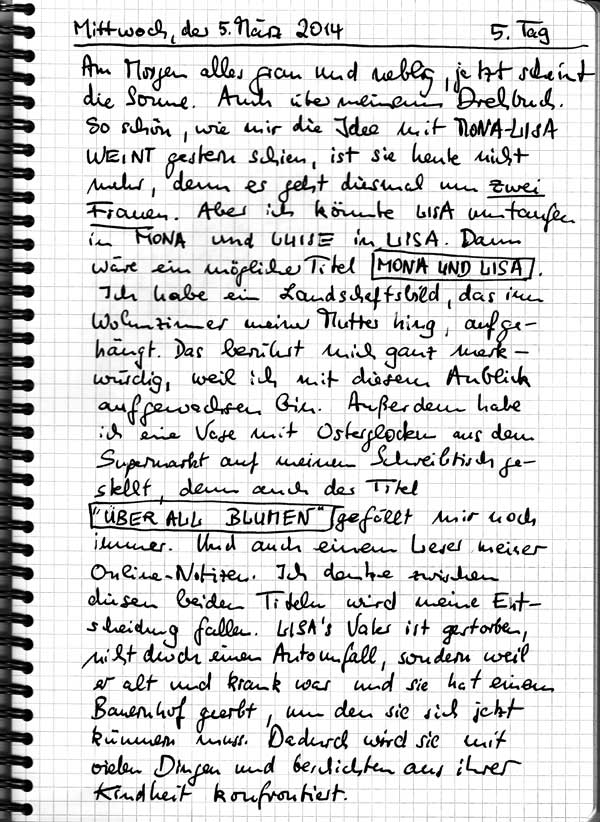 Mittwoch, der 5. März 2014 5. Tag
Am Morgen alles grau und neblig, jetzt scheint
die Sonne. Auch über meinem Drehbuch.
So schön, wie mir die Idee mit MONA-LISA
WEINT gestern schien, ist sie heute nicht
mehr, denn es geht diesmal um zwei
Frauen. Aber ich könnte LISA umtaufen
in MONA und LUISE in LISA. Dann
wäre ein möglicher Titel MONA UND LISA.
Ich habe ein Landschaftsbild, das im
Wohnzimmer meiner Mutter hing, aufge-
hängt. Das berührt mich ganz merk-
würdig, weil ich mit diesem Anblick
aufgewachsen bin. Außerdem habe
ich eine Vase mit Osterglocken aus dem
Supermarkt auf meinen Schreibtisch ge-
stellt, denn auch der Titel
"ÜBERALL BLUMEN" gefällt mir noch
immer. Und auch einem Leser meiner
Online-Notizen. Ich denke zwischen
diesen beiden Titeln wird meine Ent-
scheidung fallen. LISA's Vater ist gestorben,
nicht durch einen Autounfall, sondern weil
er alt und krank war und sie hat einen
Bauernhof geerbt, um den sie sich jetzt
kümmern muss. Dadurch wird sie mit
vielen Dingen und Geschichten aus ihrer
Kindheit konfrontiert.